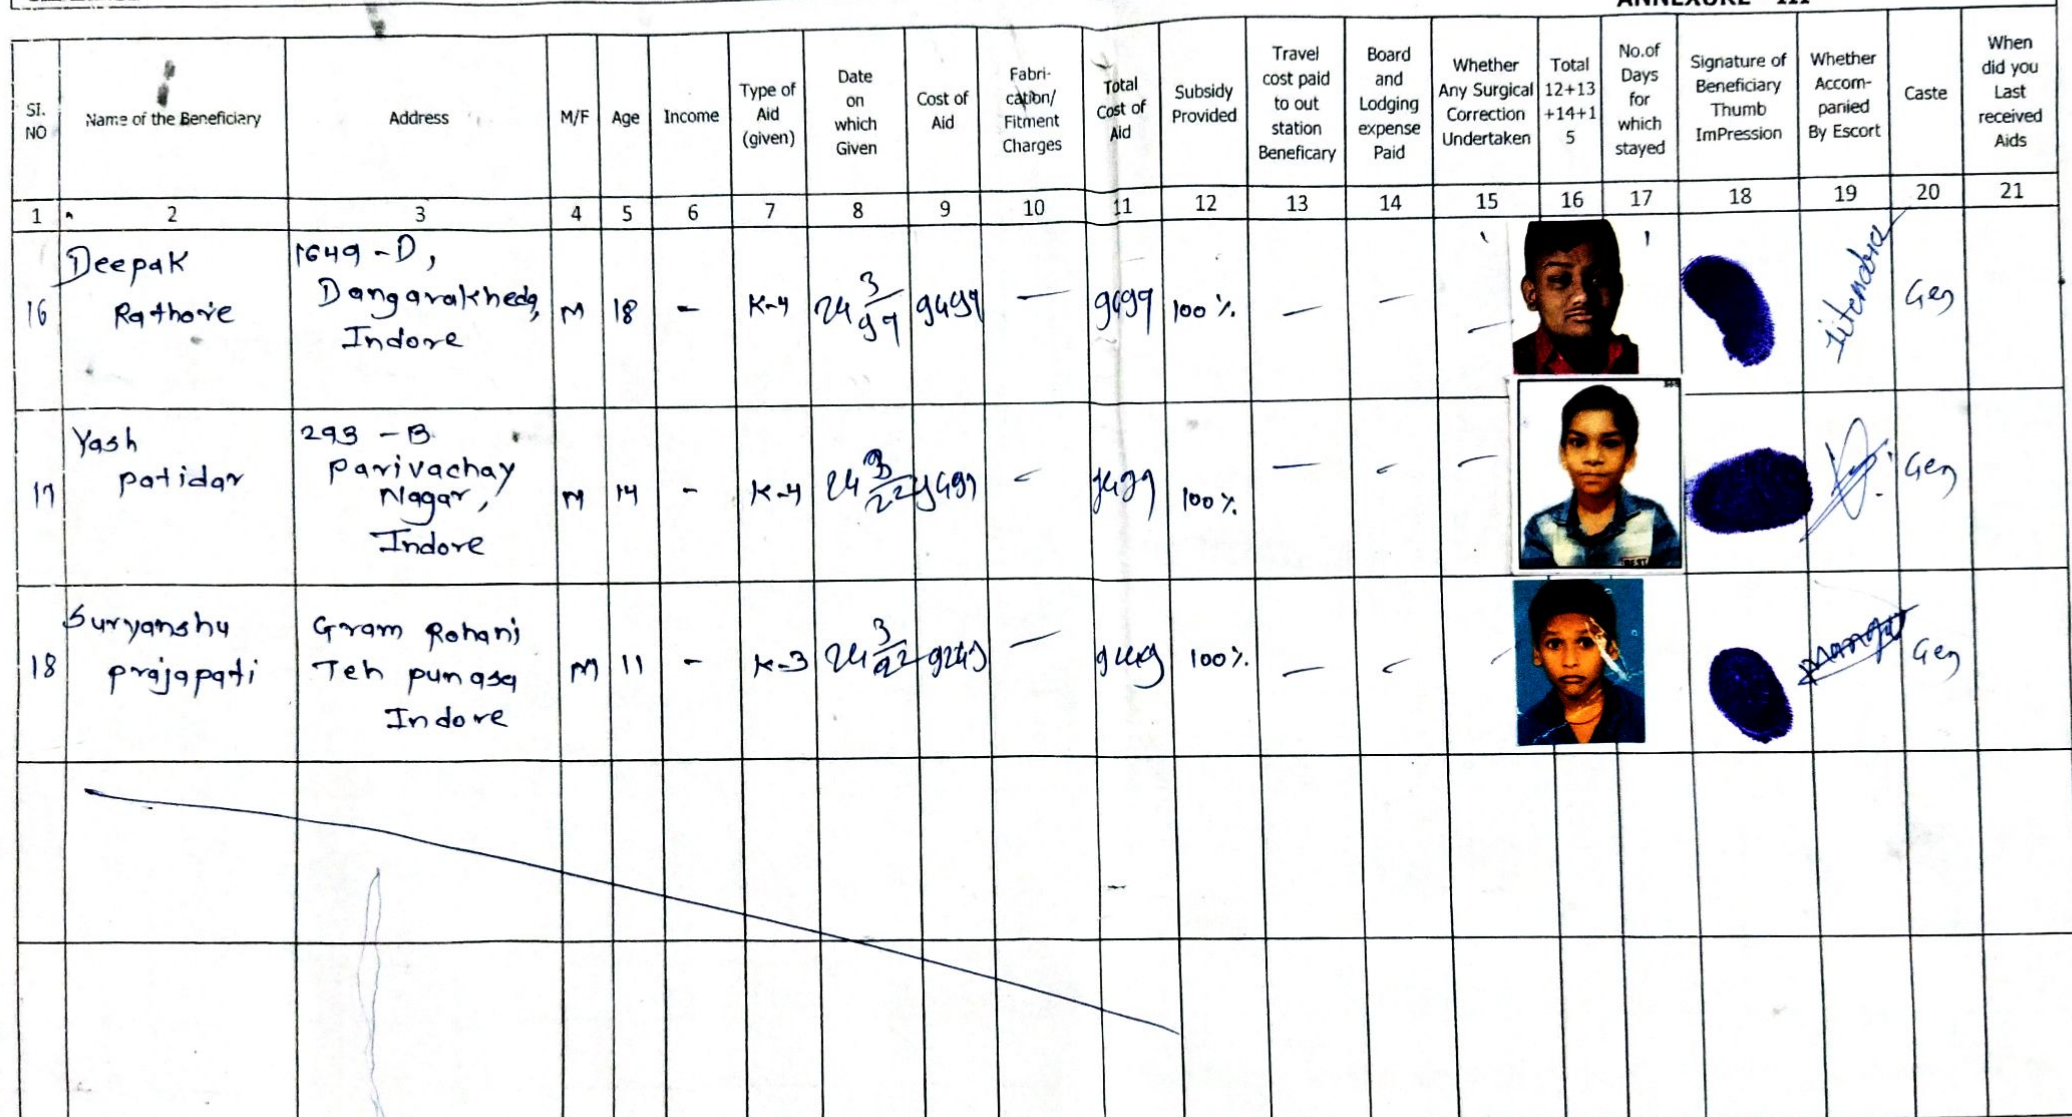 ANNEXURE - III
SI. NO
Name of the Beneficiary
Address
M/F
Age
Income
Type of Aid (given)
Date on which Given
Cost of Aid
Fabri-cation/ Fitment Charges
Total Cost of Aid
Subsidy Provided
Travel cost paid to out station Beneficary
Board and Lodging expense Paid
Whether Any Surgical Correction Undertaken
Total 12+13 +14+1 5
No.of Days for which stayed
Signature of Beneficiary Thumb ImPression
Whether Accom-panied By Escort
Caste
When did you Last received Aids
1 2 3 4 5 6 7 8 9 10 11 12 13 14 15 16 17 18 19 20 21
16
Deepak
Rathore
1649 - D,
Dangarakheda,
Indore
M 18 - K-4 24 3 9499 — 9499 100 % — — — Jitendra Gen
17
Yash
patidar
293 - B
Parivachay
Nagar,
Indore
M 14 - K-4 24 3/22 9499 - 100 % — - — Gen
18
Suryanshu
prajapati
Gram Rohani
Teh punasa
Indore
M 11 - K-3 24 3/22 — 100 % — - - Gen